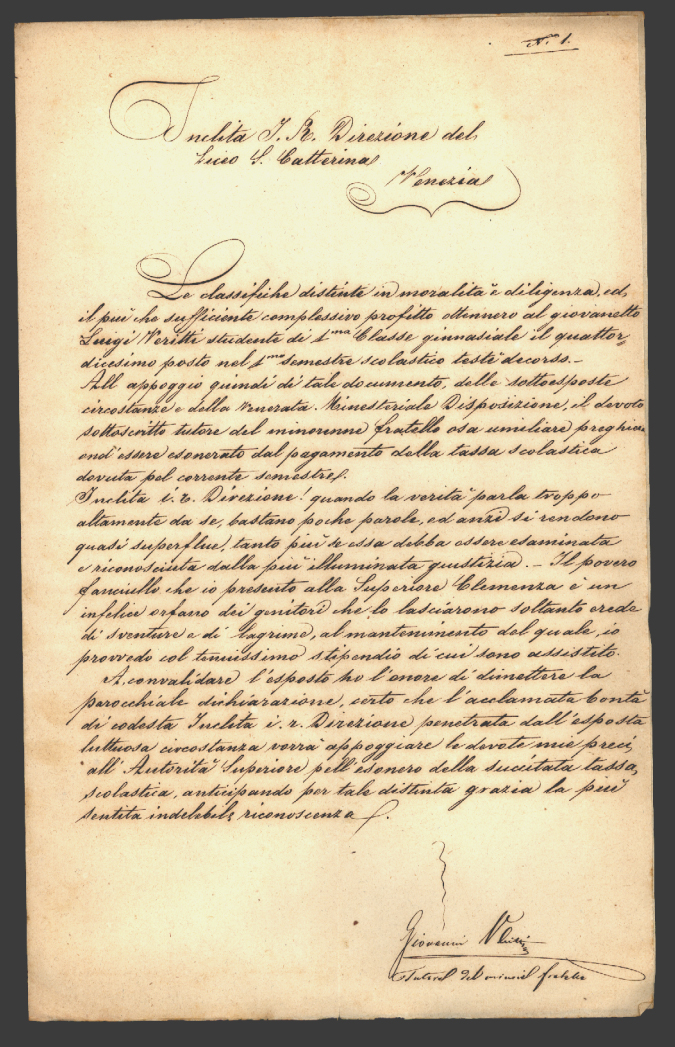 N.º 1.
Inclita I. R. Direzione del
Liceo S. Catterina
Venezia
Le classifiche distinte in moralità e diligenza, ed
il più che sufficiente complessivo profitto ottennero al giovanetto
Luigi Veritti studente di 1ma Classe ginnasiale il quattor-
dicesimo posto nel 1mo semestre scolastico testè decorso. -
All appoggio quindi di tale documento, delle sottoesposte
circostanze e della Venerata Ministeriale Disposizione, il devoto
sottoscritto tutore del minorenne fratello osa umiliare preghiera
ond' essere esonerato dal pagamento della tassa scolastica
dovuta pel corrente semestre.
Inclita i. r. Direzione! quando la verità parla troppo
altamente da se, bastano poche parole, ed anzi si rendono
quasi superflue, tanto più se essa debba essere esaminata
e riconosciuta dalla più illuminata giustizia. - Il povero
fanciullo che io presento alla Superiore Clemenza è un
infelice orfano dei genitori che lo lasciarono soltanto erede
di sventure e di lagrime, al mantenimento del quale, io
provvedo col tenuissimo stipendio di cui sono assistito.
A convalidare l'esposto ho l'onore di dimettere la
parocchiale dichiarazione, certo che l'acclamata bontà
di codesta Inclita i. r. Direzione penetrata dall'esposta
luttuosa circostanza vorrà appoggiare le devote mie preci,
all' Autorità Superiore pell'esonero della succitata tassa,
scolastica, anticipando per tale distinta grazia la più
sentita indelebile riconoscenza.
Giovanni
Tutore del minore fratello